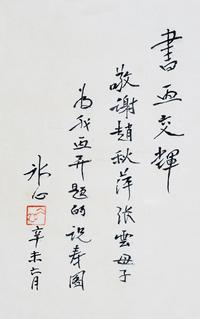 書画交輝
敬谢趙秋萍張雲母子
为我画并题的祝寿图
冰心
辛未六月